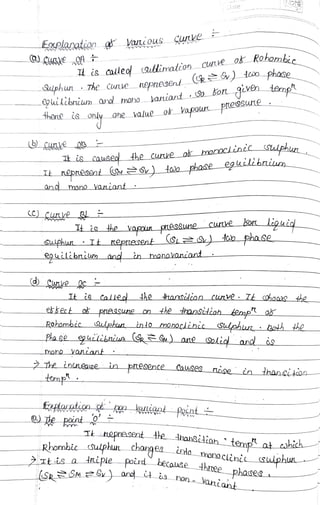 Explanation of various curve :-
(a) Curve OA :-
It is called sublimation curve of Rohombic
Sulphun. The curve represent (SR ⇌ Sv) two phase
equilibrium and mono variant. So for given tempn
there is only one value of vapour pressure.
(b) Curve OB :-
It is caused the curve of monoclinic sulphur.
It represent (SM ⇌ Sv) two phase equilibrium
and mono variant.
(c) Curve BL :-
It is the vapour pressure curve for liquid
sulphur. It represent (SL ⇌ Sv) two phase
equilibrium and in monovariant.
(d) Curve OC :-
It is called the transition curve. It shows the
effect of pressure on the transition tempn of
Rohombic sulphur into monoclinic sulphur. Both the
Phase equilibrium (SR ⇌ SM) are solid and is
mono variant.
→ The increase in presence causes rise in transition
tempn.
Explanation of non variant point :-
(e) The point 'O' :-
It represent the transition tempn at which
Rhombic sulphur changes into monoclinic sulphur.
→ It is a triple point because three phases
(SR ⇌ SM ⇌ Sv) and it is non-variant.